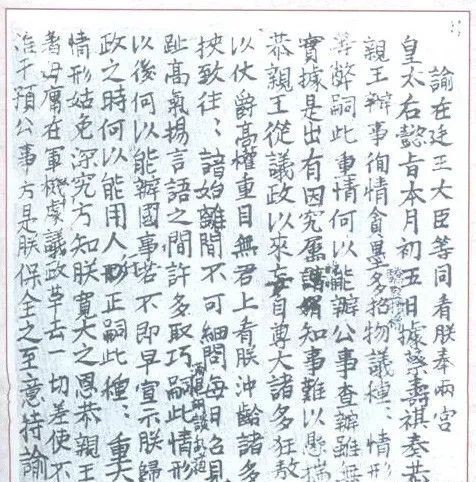 諭在廷王大臣等同看朕奉兩宮
皇太后懿旨本月初五日據蔡壽祺奏恭
親王辦事徇情貪墨驕盈攬權多招物議種〻情形
等弊嗣此重情何以能辦公事查辦雖無
實據是出有因究屬知事難以懸揣
恭親王從議政以來妄自尊大諸多狂敖
以仗爵高權重目無君上看朕沖齡諸多
挾致往〻諳始離間不可細問每日召見
趾高氣揚言語之間許多取巧滿是胡談亂道嗣此情形
以後何以能辦國事若不即早宣示朕歸
政之時何以能用人行正嗣此種〻重大
情形姑免深究方知朕寬大之恩恭親王
著毋庸在軍機處議政革去一切差使不
准干預公事方是朕保全之至意特諭